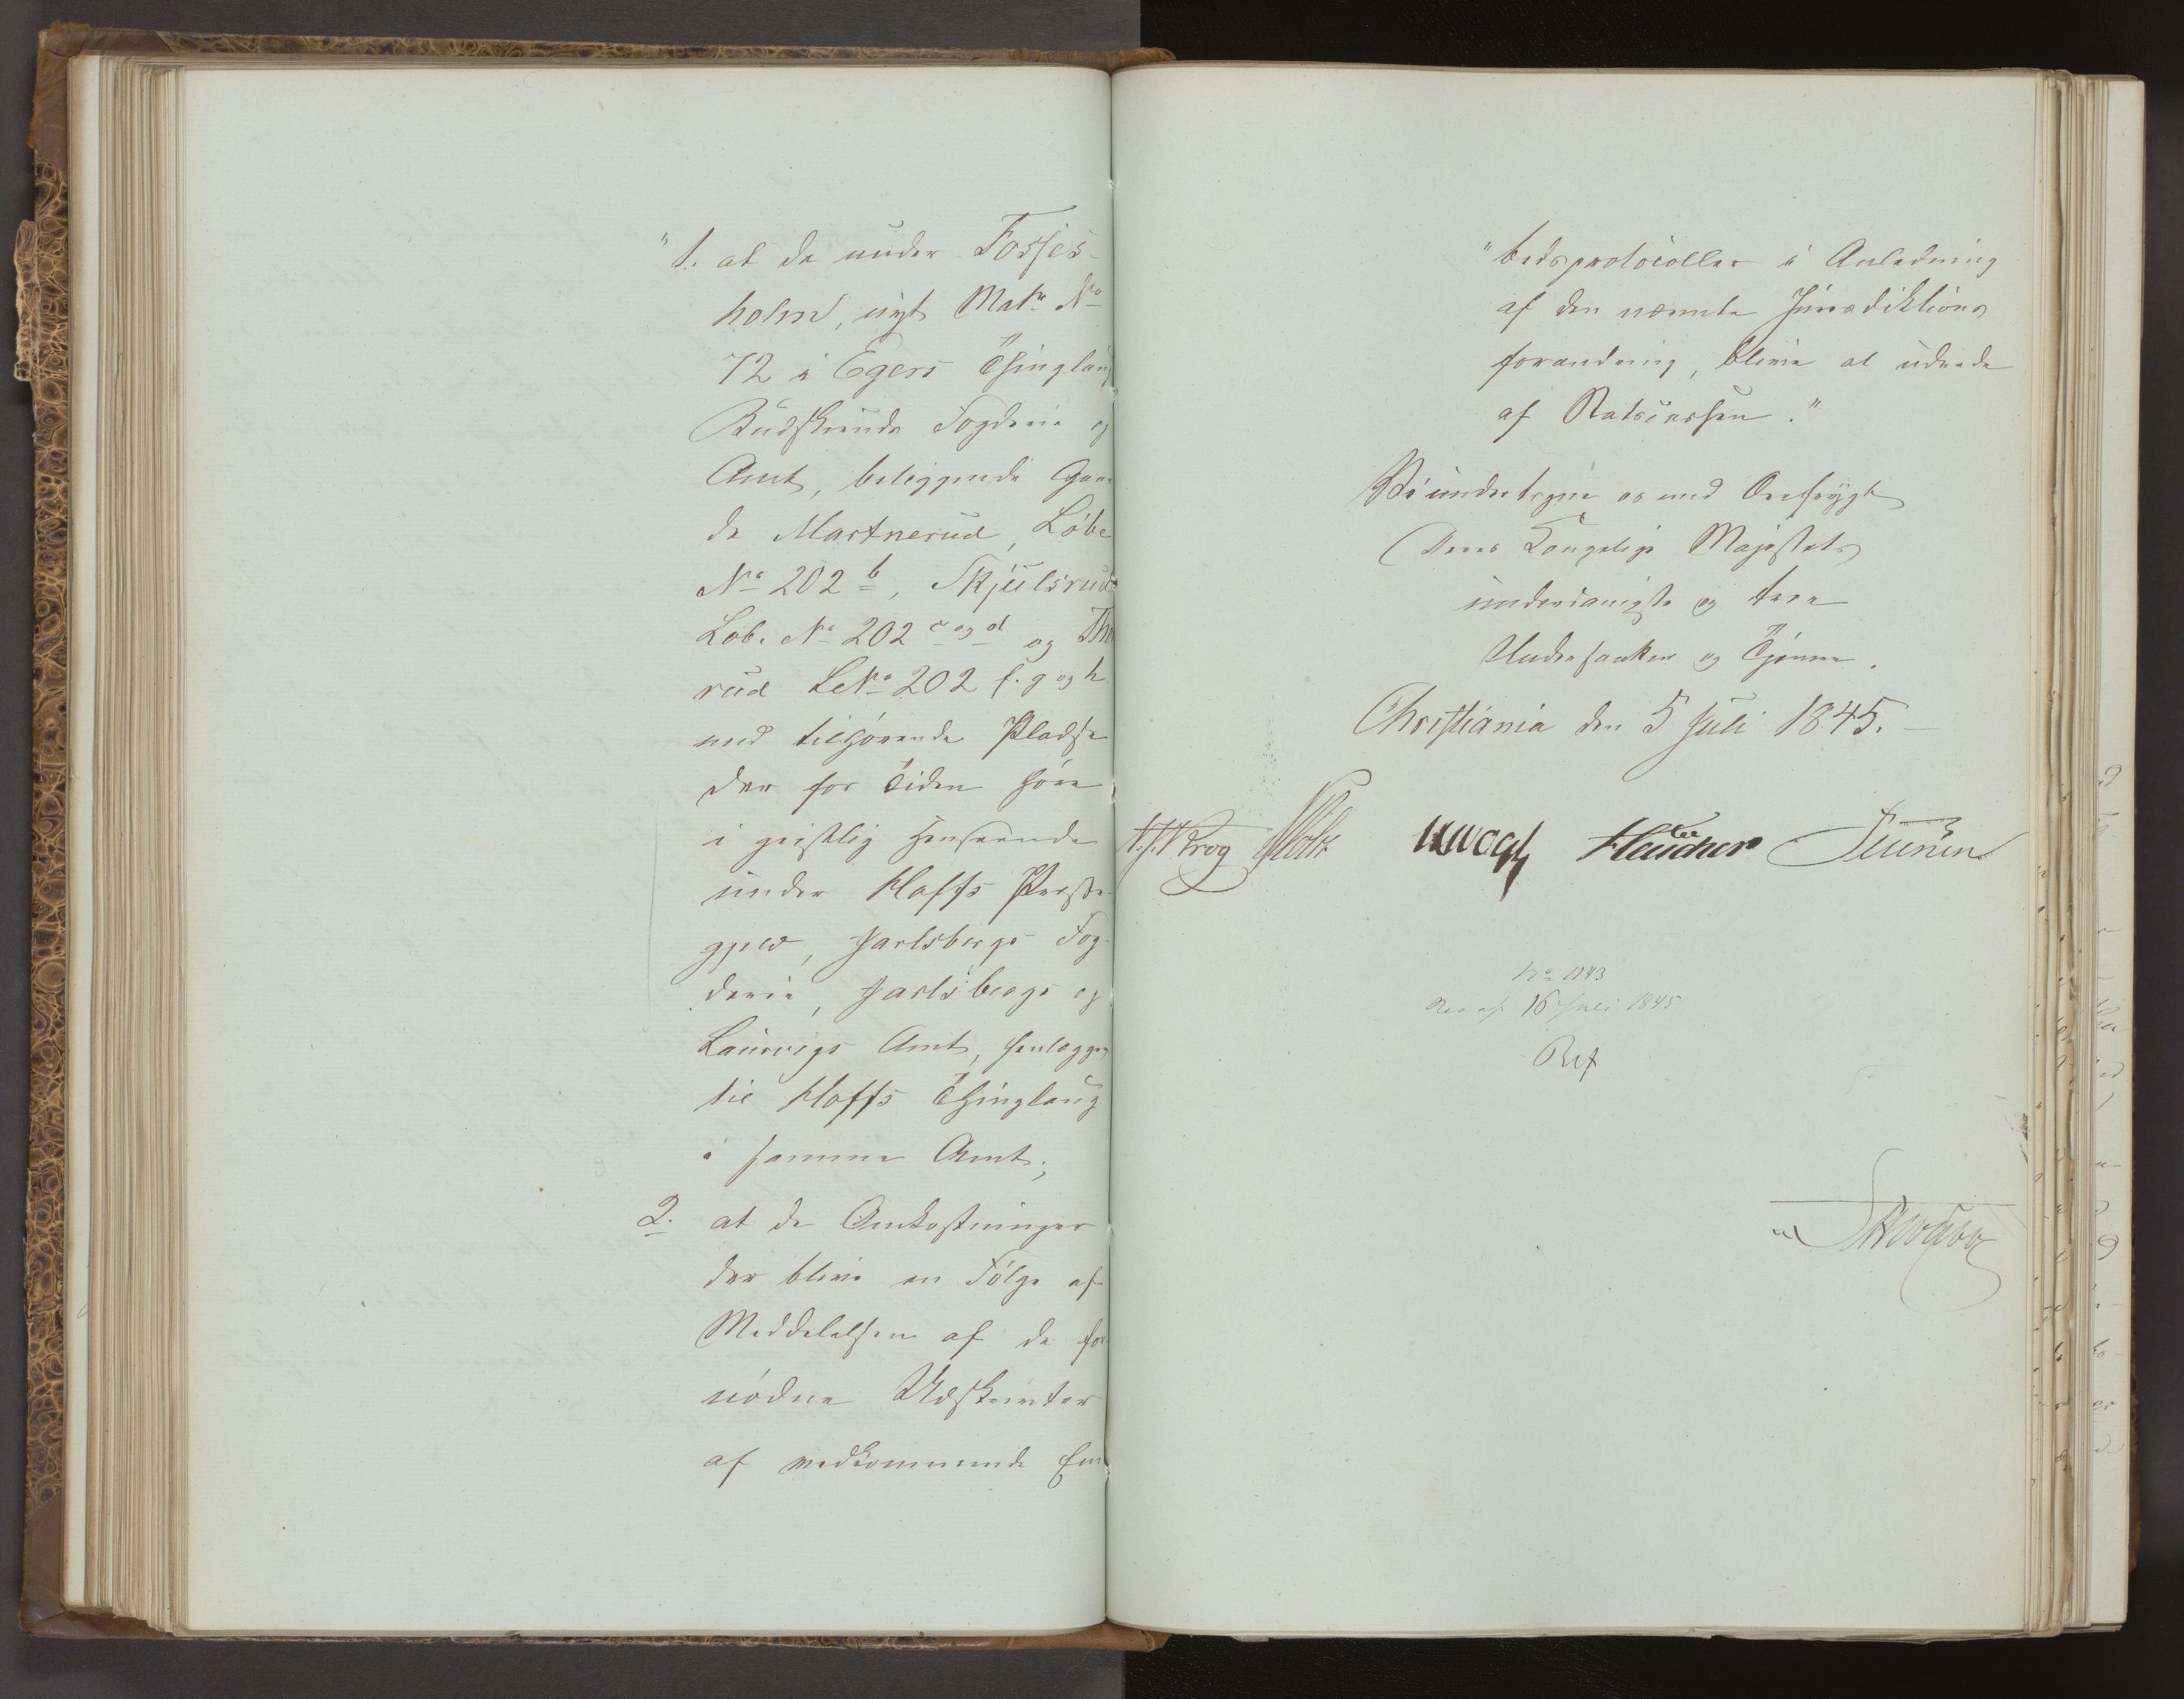 "1. at de under Fosses-
holm, nyt Matr. No
72 i Egers Thinglaug
Budskeruds Fogderie og
Amt, beliggende Gaar
de Martnerud, Løbe
No 202 b, Skjulsrud
Løb. No 202 c og d og Tho
rud L No 202 f. g og h
med tilhørende Pladse
der for Tiden høre
i geistlig Henseende
under Hoffs Præste-
gjeld, Jarlsbergs Fog-
derie, Jarlsbergs og
Laurvigs Amt, henlægges
til Hoffs Thinglaug
i samme Amt;
2. at de Omkostninger
der blive en Følge af
Meddelelsen af de for
nødne Udskrivter
af vedkommende Em
"bedsprotocoller i Anledning
af den nævnte Jurisdiktions
forandring, blive at udrede
af Statscassen."
Vi undertegne os med Ærefrygt
Deres Kongelige Majestæts
underdanigste og troe
Undersaatter og Tjenere.
Christiania den 5 Juli 1845.—
Krog Vogt
No 1143
Res af 16 Juli 1845
Ref